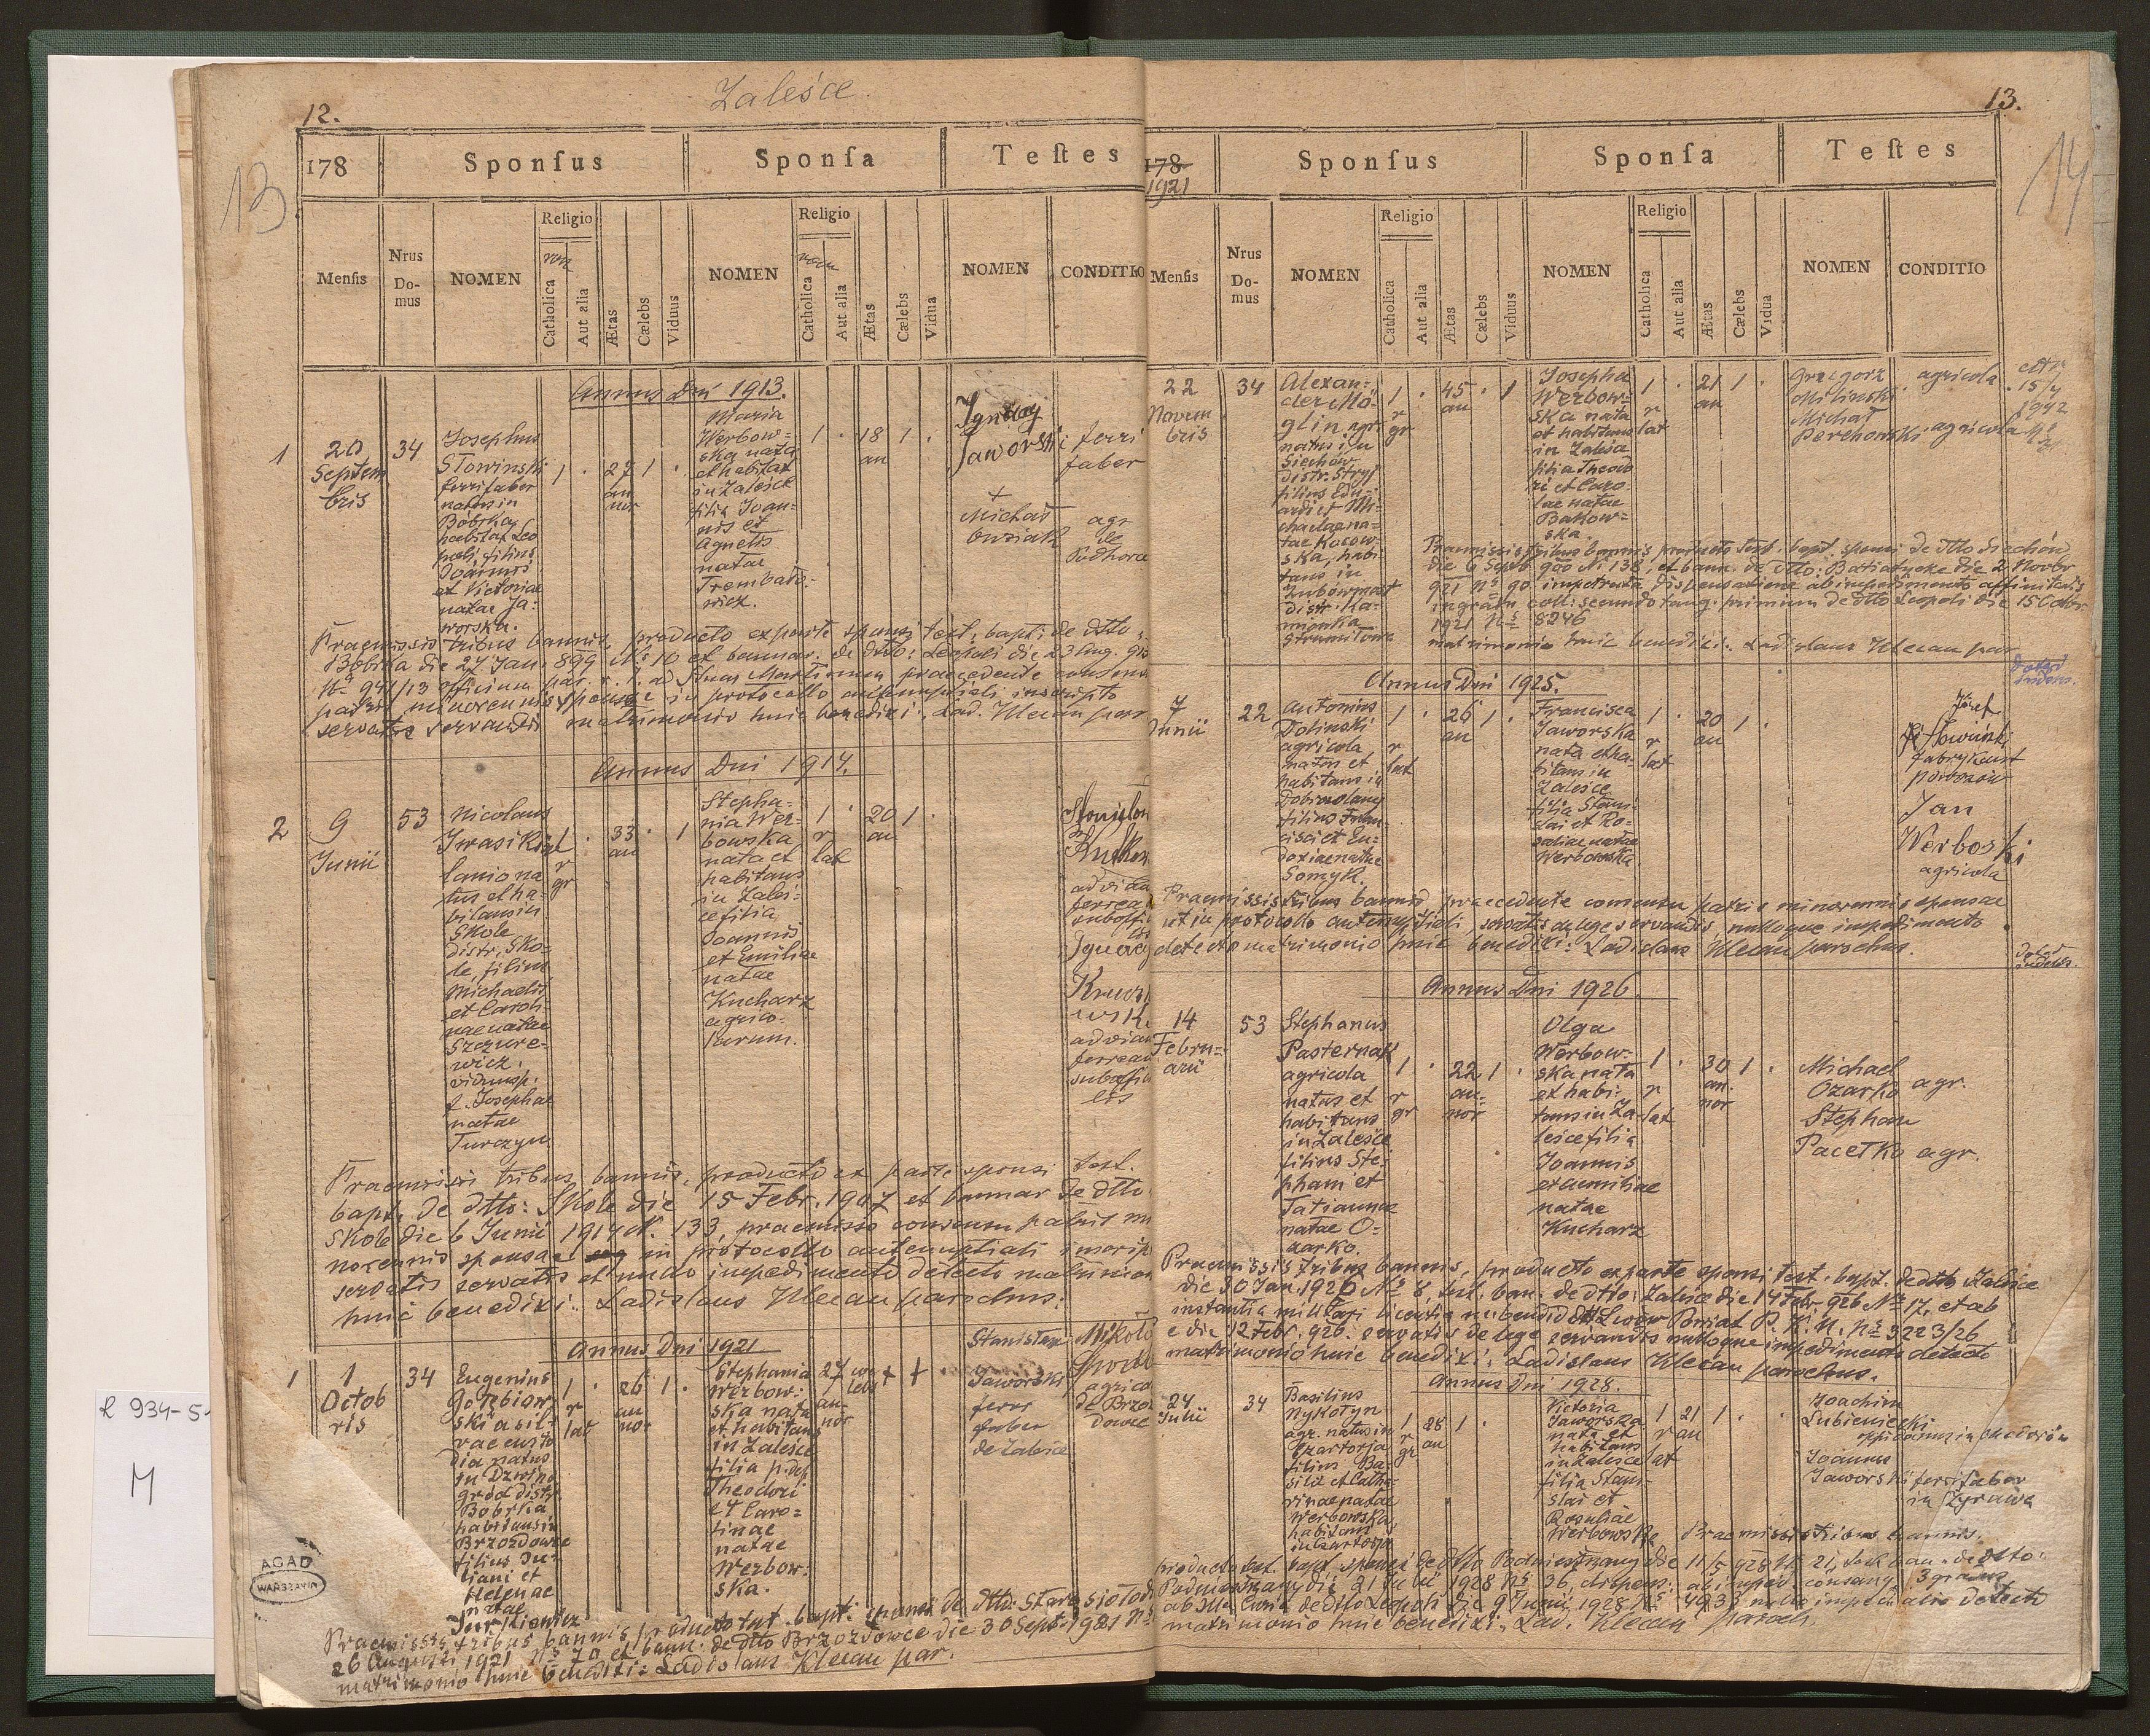 Zaleśce
12.
13
178
Sponſus
Sponſa
Teſtes
Menſis
Nrus Do-mus
NOMEN
Religio
Catholica
Aut alia
Ætas
Cælebs
Viduus
NOMEN
Religio
Catholica
Aut alia
Ætas
Cælebs
Vidua
NOMEN
CONDITIO
Annus Dni 1913.
1
20
Septem
bris
34
Josephus
Słowinski
ferrifaber
natus in
Bóbrka
habitat Leo
poli, filius
Joannis
et Victoriae
natae Ja-
worska.
1 . 27 1 .
an
nor
Maria
Werbow=
ska nata
et habitat
in Zalesce
filia Joan=
nis et
Agnetis
natae
Trembato-
wicz.
1 . 18 1 .
an
Ignacy
Jaworski
ferri
faber
+
Michał
Owsiak
agr
de
Podhorce
Praemissis tribus bannis, producto exparte sponsi test. bapti de dtto
Bobrka die 27 Jan. 899 No 10 et bannor. de dtto: Leopoli die 23 Aug. 913
No 941/13 officium par. r. l. ad S. Mart. praecedente consensu
patris minorennis sponsae in protocollo antenuptiali inscripto
servatis servandis matrimonio huic benedixi. Lad. Klecan par
Annus Dni 1914.
2
9
Junii
53
Nicolaus
Iwasikow
lanio na
tus et ha-
bitans in
Skole
distr. Sko-
le, filius
Michaelis
et Caroli-
nae natae
Szczure-
wicz,
viduus p.
f. Josephae
natae
Turczyn
1 . 33 . 1
r
gr
an
Stepha-
nia Wer-
bowska
nata et
habitans
in Zales-
ce filia
Joannis
et Emiliae
natae
Kucharz
agrico-
larum.
1 . 20 1 .
r
lat
an
ad via
ferrea
suboffi
Ignacy
ad viam
ferream
suboffici
lis
Praemissis tribus bannis, producto ex parte sponsi test.
bapt. de dtto: Skole die 15 Febr. 1907 et bannor de dtto.
Skole die 6 Junii 1914 N. 133, praemisso consensu patris mi
norennis sponsae in protocollo antenuptiali inscrip
servatis servatis et nullo impedimento detecto matrimon
huic benedixi. Ladislaus Klecan parochus:
Annus Dni 1921
1
1
Octob
ris
34
Eugenius
Gołębiow
ski a sil-
vae custo
dia natus
in Dzwino
gród distr.
Bobrka
habitans in
Brzozdowce
filius Ju-
liani et
Helenae
natae
Jurkiewicz
1 . 26 1 .
r
lat
an
nor
Stephania
Werbow-
ska nata
et habitans
in Zalesce
filia p. def
Theodori
et Caro=
linae
natae
Werbow-
ska.
27
an-
nor
Stanisław
Jaworski
ferri
faber
de Zalesce
Mikoł
agrico
de Brzoz
dowce
Praemissis tribus bannis producto test. bapti sponsi de dtto: Stare Siolo d
26 Augusti 1921 No 70 et bann. de dtto Brzozdowce die 30 Sept. 1921 No
matrimonio huic benedixi: Ladislaus Klecan par.
R 934-5
M
AGAD
WARSZAWA
13.
14
178
1921
Sponſus
Sponſa
Teſtes
Menſis
Nrus Do-mus
NOMEN
Religio
Catholica
Aut alia
Ætas
Cælebs
Viduus
NOMEN
Religio
Catholica
Aut alia
Ætas
Cælebs
Vidua
NOMEN
CONDITIO
22
Novem
bris
34
Alexan-
der Mo-
glin agri
natus in
Siechów
distr. Stryj
filius Edu-
ardi et Mi-
chaelae na-
tae Kosow-
ska, habi
tans in
distr. Ka-
mionka
Strumiłowa
1 . 45 . 1
r
gr
an
Josepha
Werbow-
ska nata
et habitans
in Zalesce
filia Theodo
ri et Caro-
lae natae
Bakow-
ska.
1 . 21 1 .
r
lat
an
Grzegorz
Milinski
agricola
Michał
Perchowski
agricola
15/4
1942
Praemissis tribus bannis producto test. bapt. sponsi de dtto Siechów
die 6 Septb 900 N 138, et bann. de dtto: Batiatycke die 2 Novbr
921 No 90 impetrata dispensatione ab impedimento affinitatis
in gradu coll: secundo tang. primum de dtto Leopoli die 15 Octbr
1921 No 8246
matrimonio huic benedixi. Ladislaus Klecan par
Annus Dni 1925.
7
Junii
22
Antonius
Dolinski
agricola
natus et
habitans in
Dobrowlany
filius Fran-
cisci et Eu-
doxiae natae
Somyk.
1 . 26 1 .
r
lat
an
Francisca
Jaworska
nata et ha-
bitans in
Zalesce
filia Stanis-
lai et Ro-
saliae natae
Werbowska
1 . 20 1 .
r
lat
an
Józef
Słowiński
fabrykant
powozów
Jan
Werboski
agricola
Praemissis tribus bannis, praecedente consensu patris minorennis sponsae
ut in protocollo antenuptiali servatis de lege servandis nulloque impedimento
detecto matrimonio huic benedixi: Ladislaus Klecan parochus.
Annus Dni 1926.
14
Febru-
arii
53
Stephanus
Pasternak
agricola
natus et
habitans
in Zalesce
filius Ste-
phani et
Tatiannae
natae O-
zarko.
1 . 22 1 .
r
gr
an-
nor
Olga
Werbow-
ska nata
et habi-
tans in Za-
lesce filia
Joannis
et Aemiliae
natae
Kucharz
1 . 30 1 .
r
lat
an.
nor
Michael
Ozarko agr.
Stephan
Pacetko agr.
Praemissis tribus bannis, producto exparte sponsi test. bapt. de dtto Zalesce
die 30 Jan 1926 No 8, test. ban. de dtto: Zalesce die 14 Febr. 926 No 17, et ab
instantia militari licentia nubendi dtt Lwów Powiat P. K. U. No 3223/26
e die 12 Febr. 926. servatis de lege servandis nulloque impedimento detecto
matrimonio huic benedixi: Ladislaus Klecan parochus.
Annus Dni 1928.
24
Julii
34
Basilius
Nykołyn
agr. natus in
Czartorja
filius Ba-
silii et Catha-
rinae natae
Werbowska,
habitans
in Czartorja
1 28 1 .
r
gr
an
Victoria
Jaworska
nata et
habitans
in Zalesce
filia Stanis-
lai et
Rosaliae
Werbowska
1 21 1 .
r
lat
an
Joachim
Lubieniecki
oppidanus in Chodorów
Joannes
Jaworski ferrifaber
in Żyrawa
Praemissis tribus bannis,
producto test. bapt. sponsi de dtto Podniestrzany die 11/5 928 N 21, test ban. de dtto.
Podniestrzany die 21 Julii 1928 No 36, dispens. ab imped. consang. 3 gradus
ab Ill. Curia de dtto Leopoli die 9 Junii 1928 No 4933 nullo imped. alio detecto
matrimonio huic benedixi. Lad. Klecan paroch.